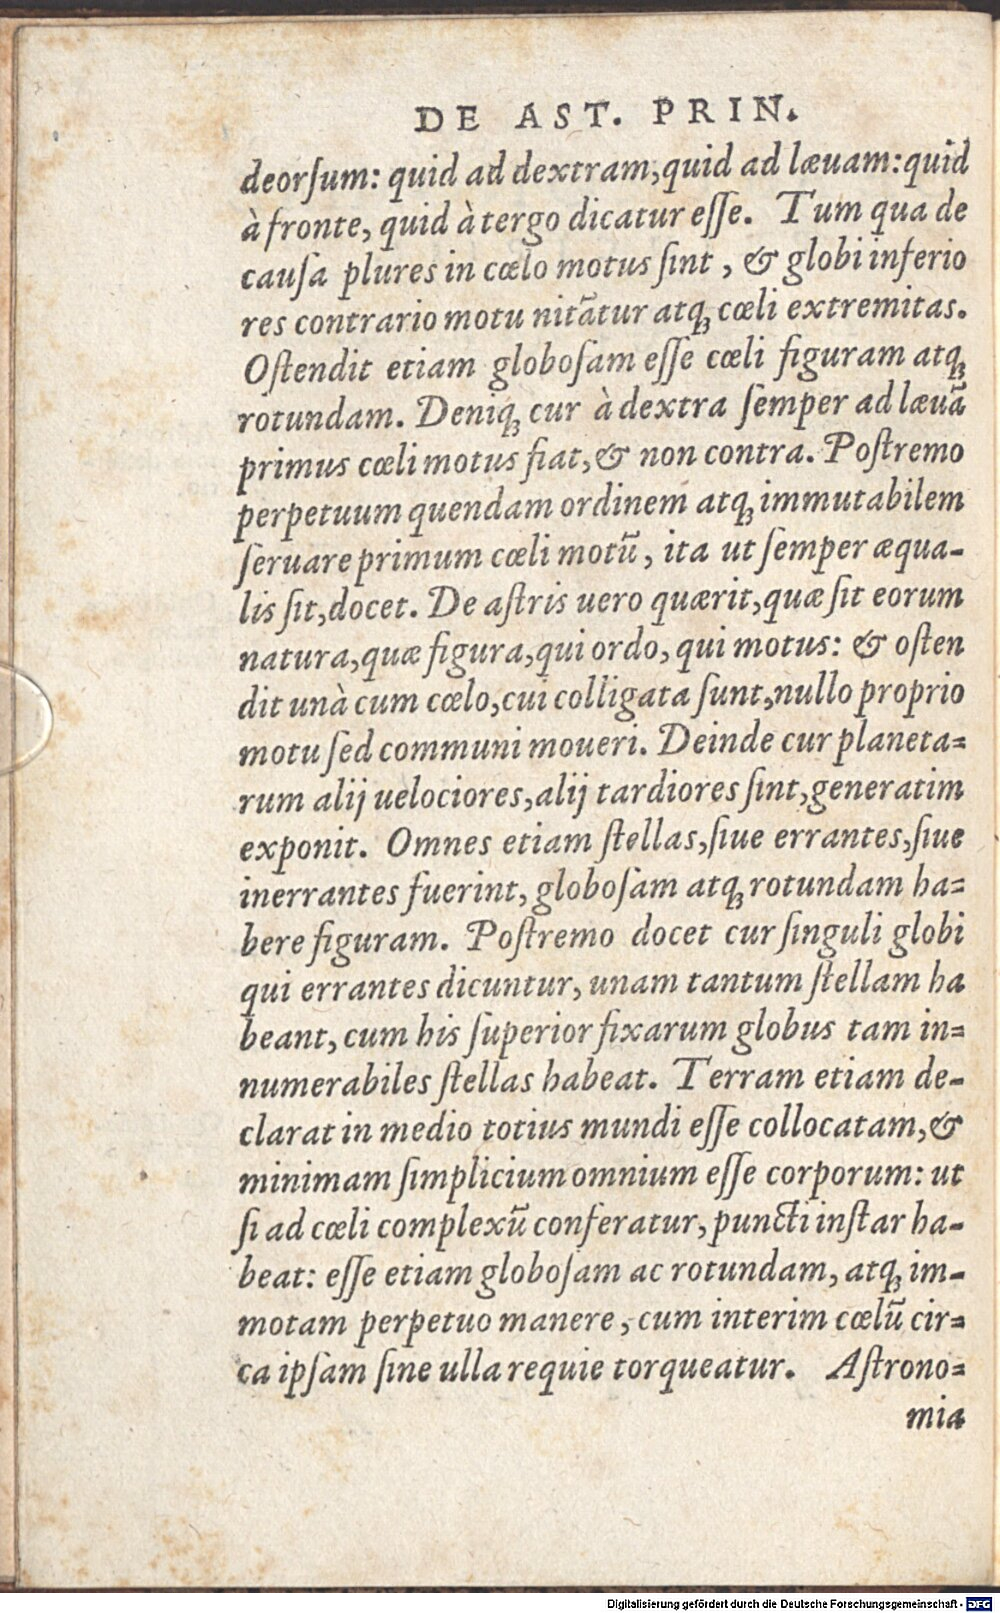 DE AST. PRIN.
deorſum: quid ad dextram, quid ad læuam: quid
à fronte, quid à tergo dicatur eſſe. Tum qua de
cauſa plures in cœlo motus ſint, & globi inferio
res contrario motu nitãtur atq; cœli extremitas.
Oſtendit etiam globoſam eſſe cœli figuram atq;
rotundam. Deniq; cur à dextra ſemper ad læuã
primus cœli motus fiat, & non contra. Poſtremo
perpetuum quendam ordinem atq; immutabilem
ſeruare primum cœli motũ, ita ut ſemper æqua-
lis ſit, docet. De aſtris uero quærit, quæ ſit eorum
natura, quæ figura, qui ordo, qui motus: & oſten
dit unà cum cœlo, cui colligata ſunt, nullo proprio
motu ſed communi moueri. Deinde cur planeta-
rum alij uelociores, alij tardiores ſint, generatim
exponit. Omnes etiam ſtellas, ſiue errantes, ſiue
inerrantes fuerint, globoſam atq; rotundam ha-
bere figuram. Poſtremo docet cur ſinguli globi
qui errantes dicuntur, unam tantum ſtellam ha
beant, cum his ſuperior fixarum globus tam in-
numerabiles ſtellas habeat. Terram etiam de-
clarat in medio totius mundi eſſe collocatam, &
minimam ſimplicium omnium eſſe corporum: ut
ſi ad cœli complexũ conferatur, puncti inſtar ha-
beat: eſſe etiam globoſam ac rotundam, atq; im-
motam perpetuo manere, cum interim cœlũ cir-
ca ipſam ſine ulla requie torqueatur. Aſtrono-
mia
Digitalisierung gefördert durch die Deutsche Forschungsgemeinschaft - DFG